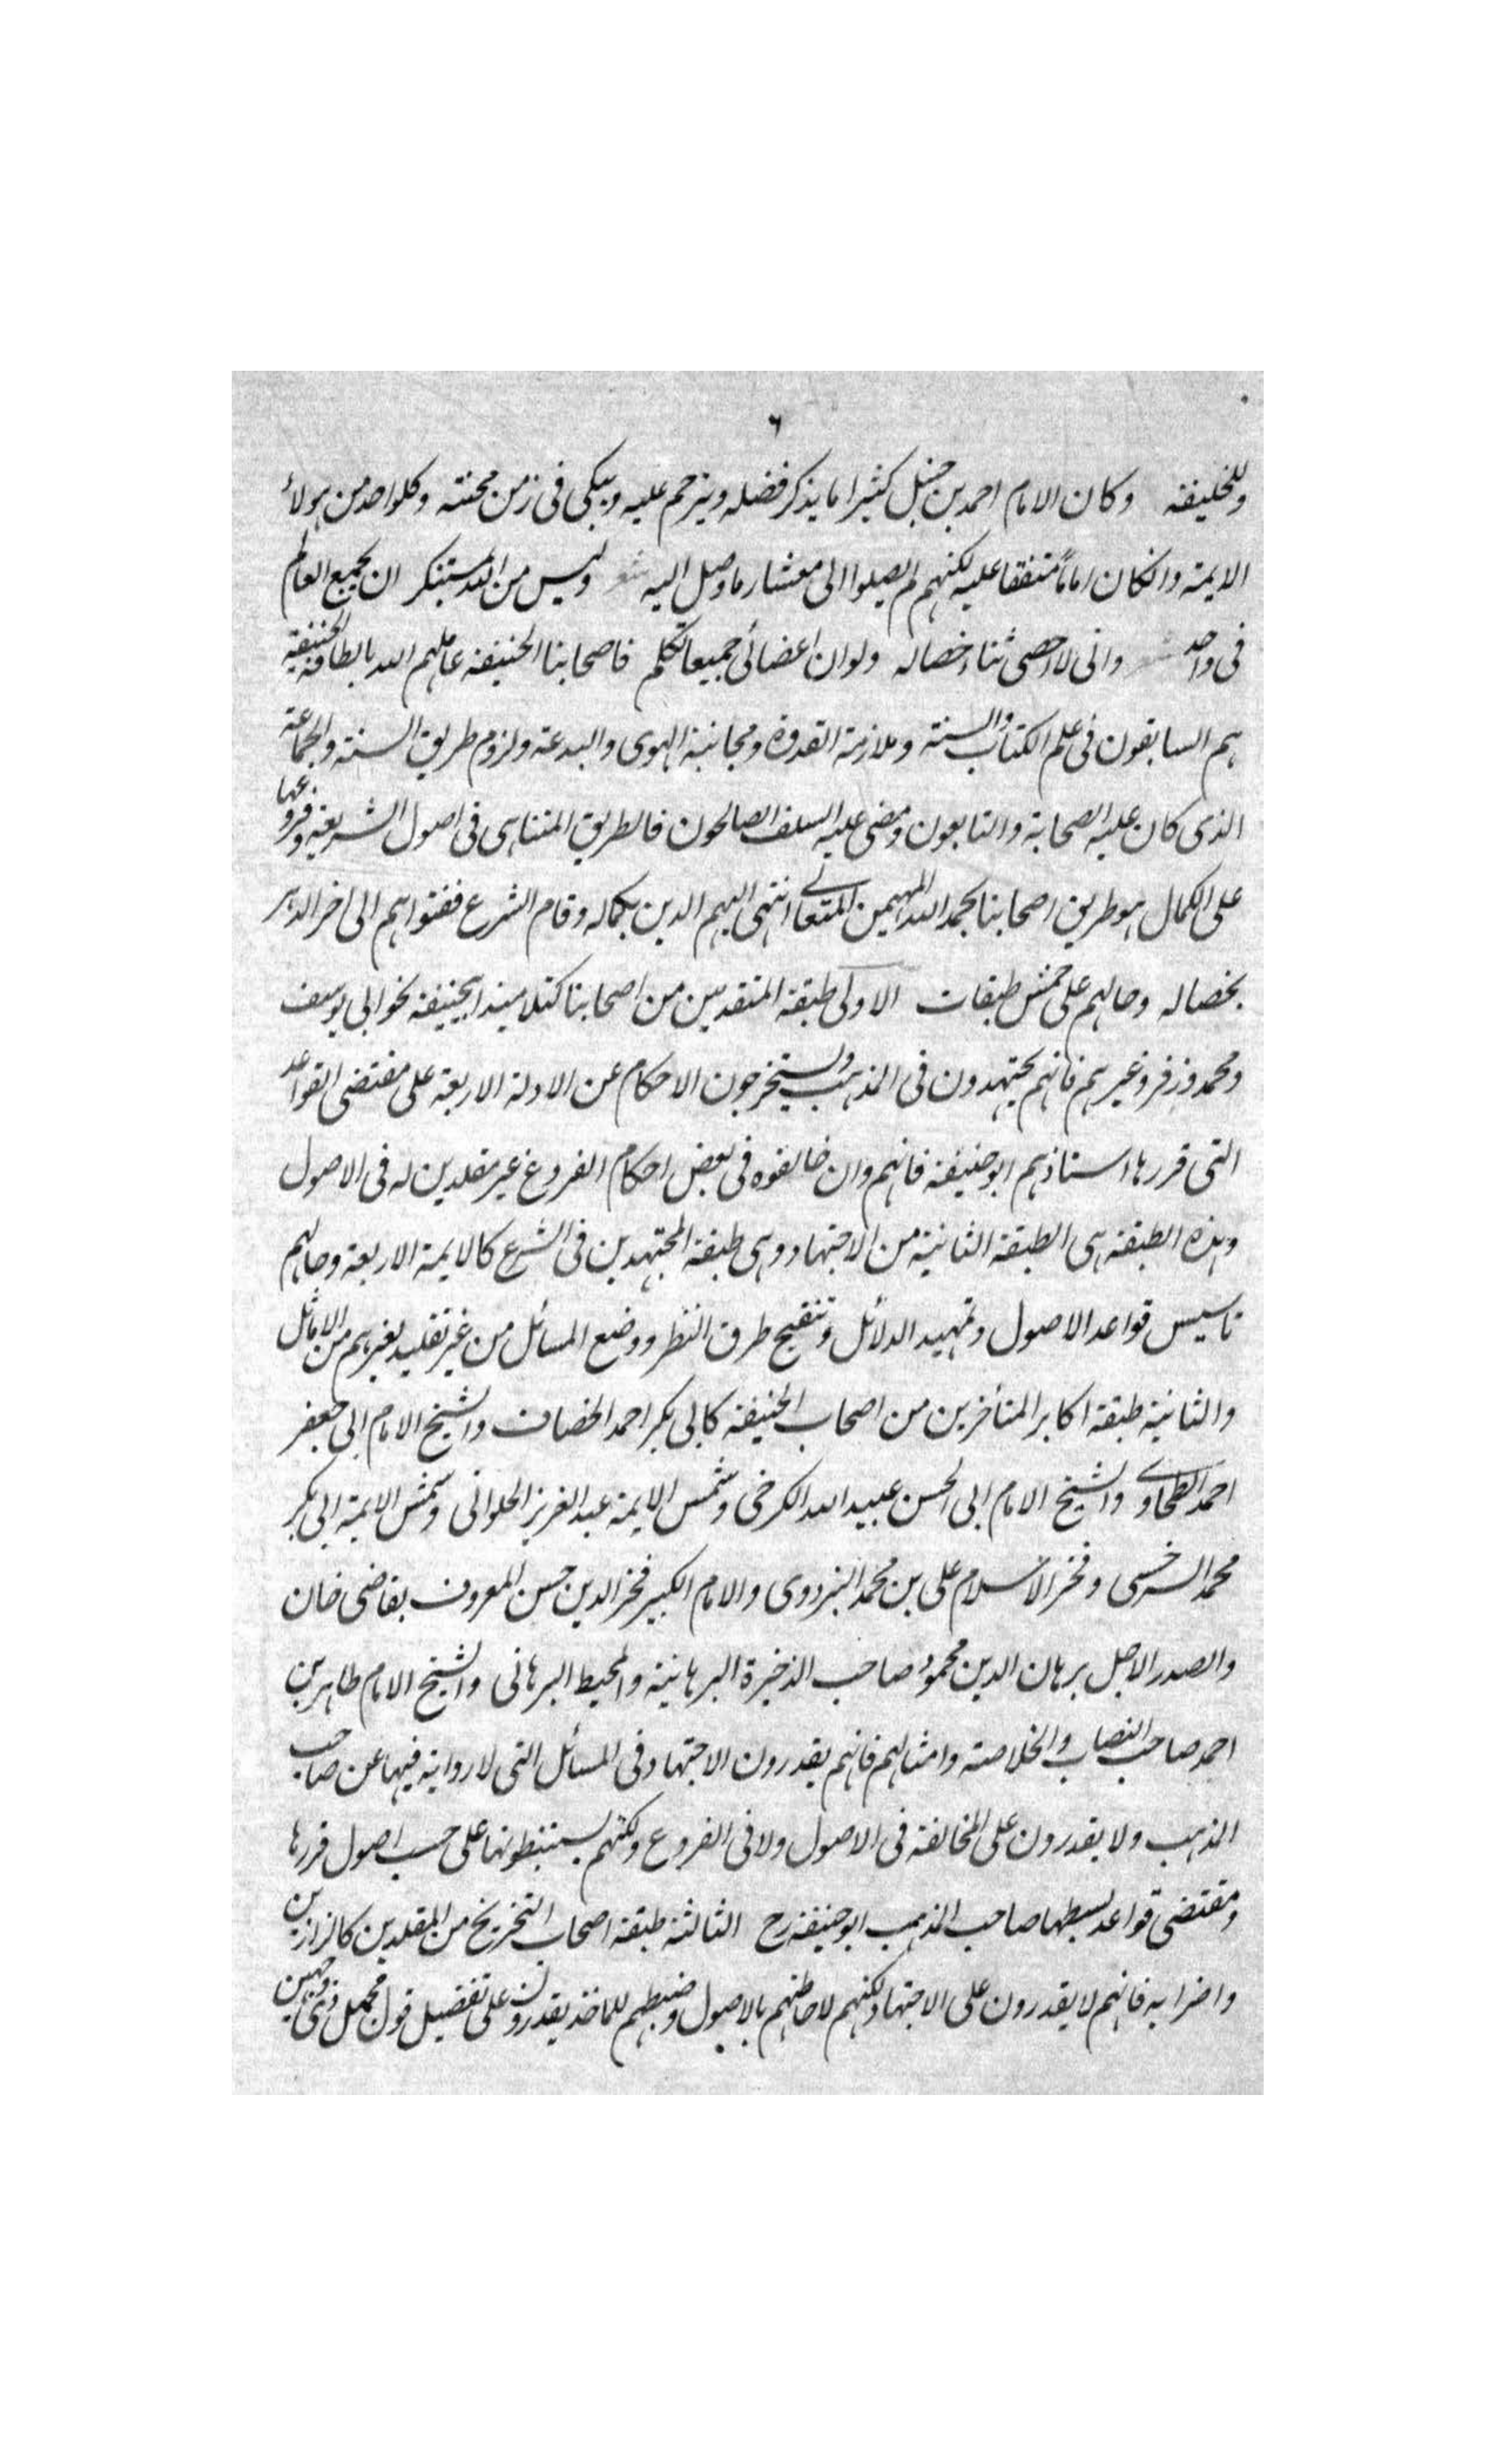 ٦
وللخليفة وكان الامام احمد بن حنبل كثيرا ما يذكر فضله ويترحم عليه ويبكى فى زمن محنته وكلواحد من هولاء
الايمة وانكان اماماً متفقا عليه لكنهم لم يصلوا الى معشار ما وصل اليه شعر وليس من الله بمستنكر ان يجمع العالم
فى واحد شعر وانى لا احصى ثناء خصاله ولو ان اعضائى جميعا تكلم فاصحابنا الحنيفة عاملهم الله بالطافه الحنفية
هم السابقون فى علم الكتاب والسنة وملازمة القدوة ومجانبة الهوى والبدعة ولزوم طريق السنة والجماعة
الذى كان عليه الصحابة والتابعون ومضى عليه السلف الصالحون فالطريق المتناهى فى اصول الشريعة وفروعها
على الكمال هو طريق اصحابنا بحمد الله المهيمن المتعالى انتهى اليهم الدين بكماله وقام الشرع ففتواهم الى اخر الدهر
بخصاله وحالهم على خمس طبقات الاولى طبقة المتقدمين من اصحابنا كتلاميذ ابيحنيفة نحو ابى يوسف
ومحمد وزفر وغيرهم فانهم يجتهدون فى المذهب ويستخرجون الاحكام عن الادلة الاربعة على مقتضى القواعد
التى قررها استاذهم ابو حنيفة فانهم وان خالفوه فى بعض احكام الفروع غير مقلدين له فى الاصول
وهذه الطبقة هى الطبقة الثانية من الاجتهاد وهى طبقة المجتهدين فى الشرع كالايمة الاربعة وحالهم
تاسيس قواعد الاصول وتمهيد الدلائل وتنقيح طرق النظر ووضع المسائل من غير تقليد بغيرهم من الاماثل
والثانية طبقة اكابر المتأخرين من اصحاب الحنيفة كابى بكر احمد الخصاف والشيخ الامام ابى جعفر
احمد الطحاوى والشيخ الامام ابى الحسن عبيد الله الكرخى وشمس الايمة عبد العزيز الحلوانى وشمس الايمة ابى بكر
محمد السرخسى وفخر الاسلام على بن محمد البزدوى والامام الكبير فخر الدين حسن المعروف بقاضى خان
والصدر الاجل برهان الدين محمود صاحب الذخيرة البرهانية والمحيط البرهانى والشيخ الامام طاهر بن
احمد صاحب النصاب والخلاصة وامثالهم فانهم يقدرون الاجتهاد فى المسائل التى لا رواية فيها عن صاحب
المذهب ولا يقدرون على المخالفة فى الاصول ولا فى الفروع ولكنهم يستنبطونها على حسب اصول قررها
ومقتضى قواعد بسطها صاحب المذهب ابو حنيفة رح الثالثة طبقة اصحاب التخريج من المقلدين كالرازيين
واضرابه فانهم لا يقدرون على الاجتهاد لكنهم لاحاطتهم بالاصول وضبطهم للماخذ يقدرون على تفصيل قول مجمل ذى وجهين